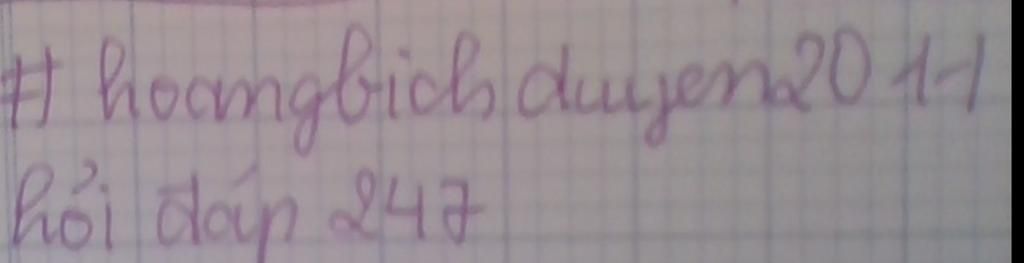 # hoangbichduyen2011
hỏi đáp 247